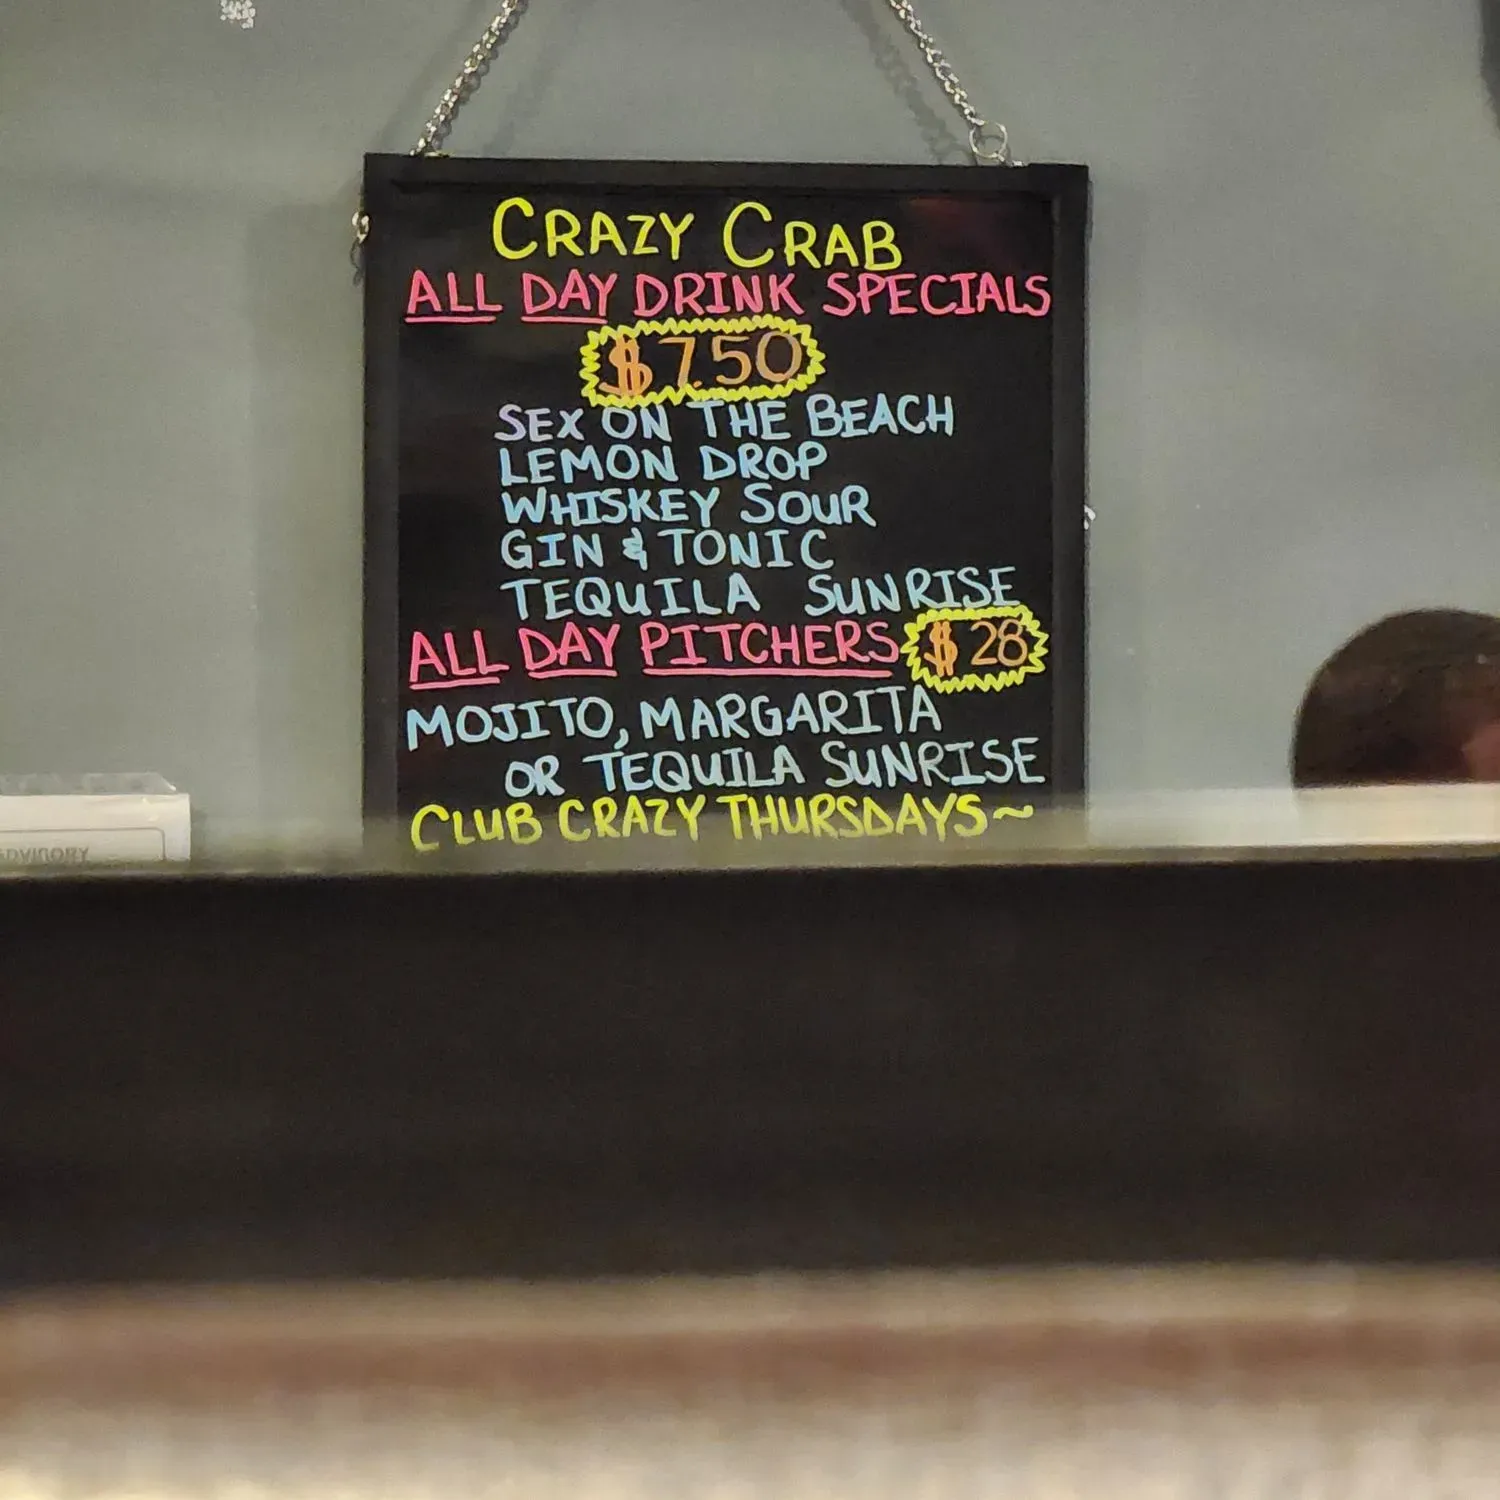 CRAZY CRAB
ALL DAY DRINK SPECIALS
$7.50
SEX ON THE BEACH
LEMON DROP
WHISKEY SOUR
GIN & TONIC
TEQUILA SUNRISE
ALL DAY PITCHERS $28
MOJITO, MARGARITA
OR TEQUILA SUNRISE
CLUB CRAZY THURSDAYS~
ADVISORY